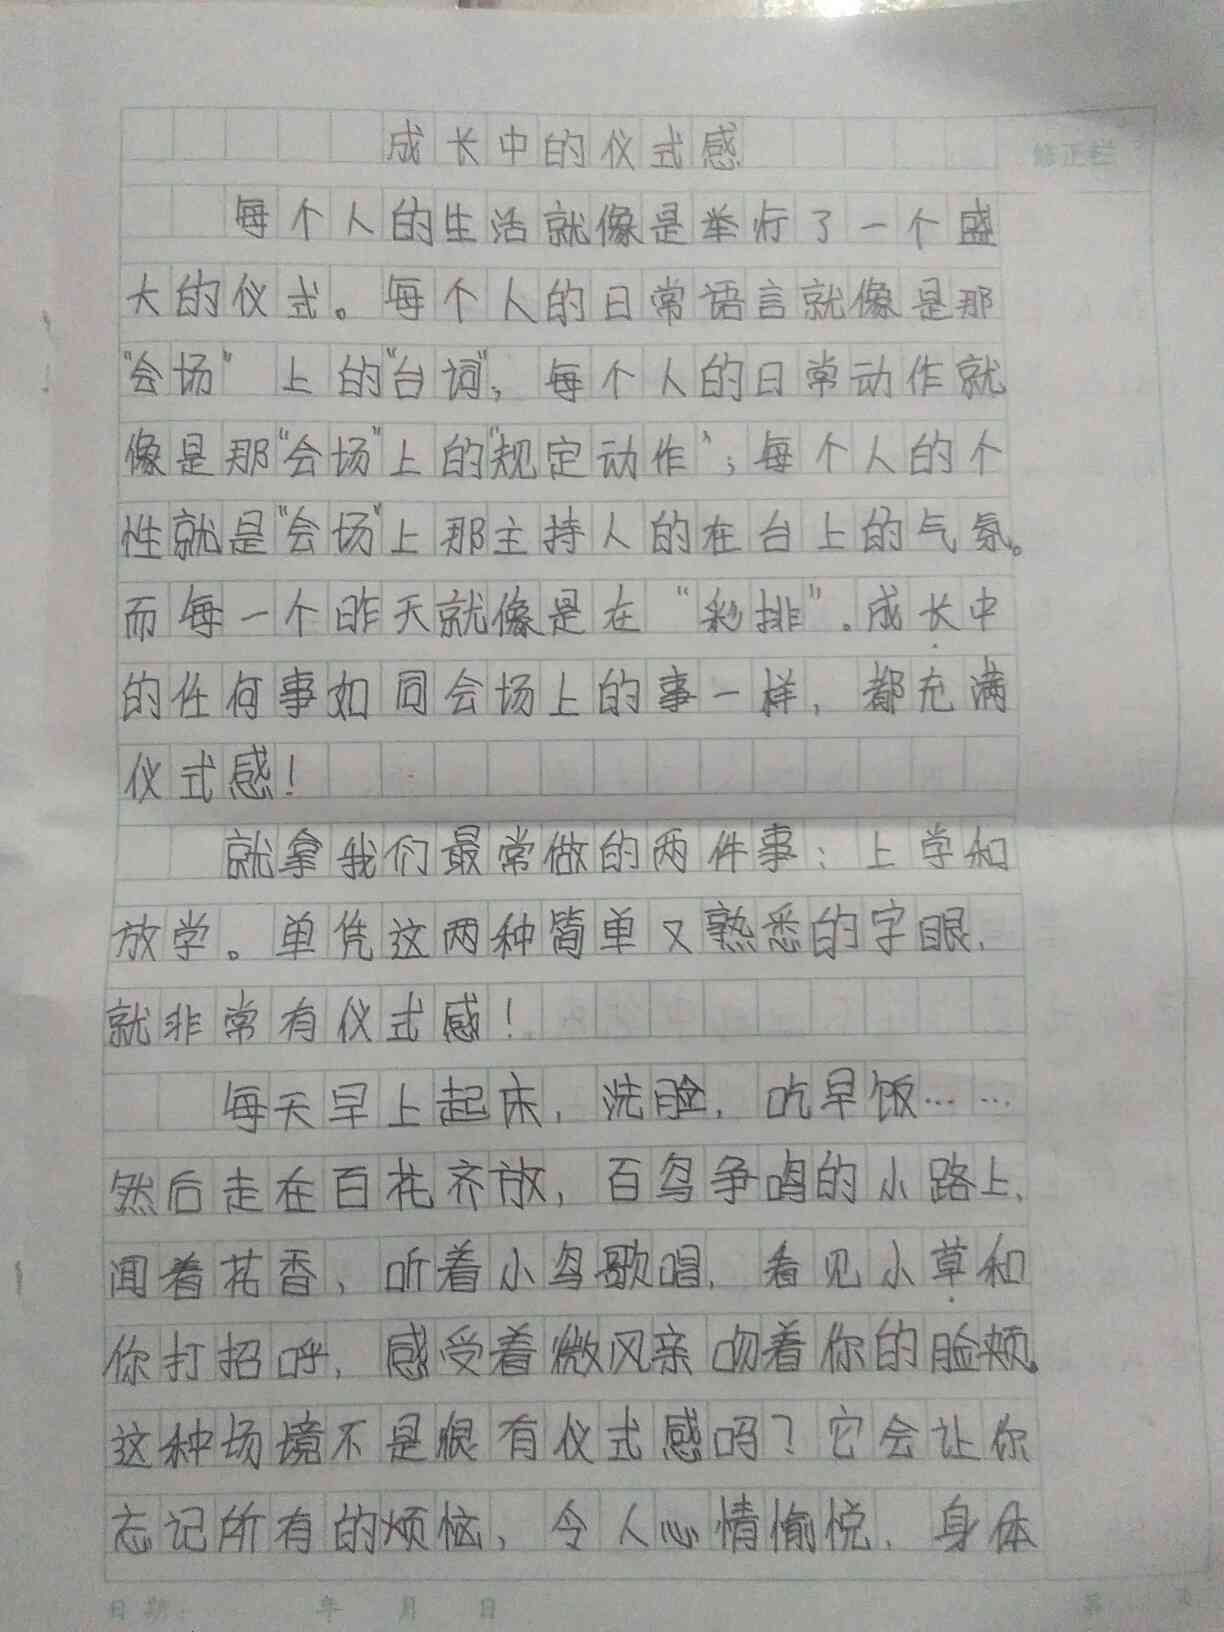 成长中的仪式感
修正栏
每个人的生活就像是举行了一个盛
大的仪式。每个人的日常语言就像是那
“会场”上的“台词”，每个人的日常动作就
像是那“会场”上的“规定动作”；每个人的个
性就是“会场”上那主持人的在台上的气氛。
而每一个昨天就像是在“彩排”。成长中
的任何事如同会场上的事一样，都充满
仪式感！
就拿我们最常做的两件事：上学和
放学。单凭这两种简单又熟悉的字眼，
就非常有仪式感！
每天早上起床，洗脸，吃早饭……
然后走在百花齐放，百鸟争鸣的小路上，
闻着花香，听着小鸟歌唱，看见小草和
你打招呼，感受着微风亲吻着你的脸颊。
这种场境不是很有仪式感吗？它会让你
忘记所有的烦恼，令人心情愉悦，身体
日期： 年 月 日 第 页